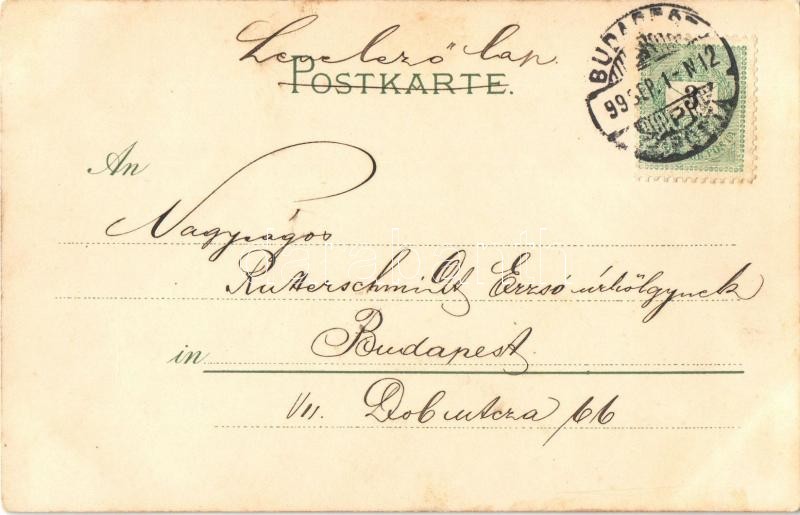 Levelező lap.
POSTKARTE.
BUDAPEST
99 SEP. 1 - N12
3
An
Nagyságos
Rutterschmidt Erzsó úrhölgynek
in Budapest
VII. Dob utcza 66